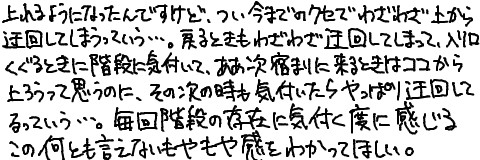 上れるようになったんですけど、つい今までのクセでわざわざ上から
迂回してしまうっていう…。戻るときもわざわざ迂回してしまって、入り口
くぐるときに階段に気付いて、ああ次宿まりに来るときはココから
上ろうって思うのに、その次の時も気付いたらやっぱり迂回して
るっていう…。毎回階段の存在に気付く度に感じる
この何とも言えないもやもや感をわかってほしい。